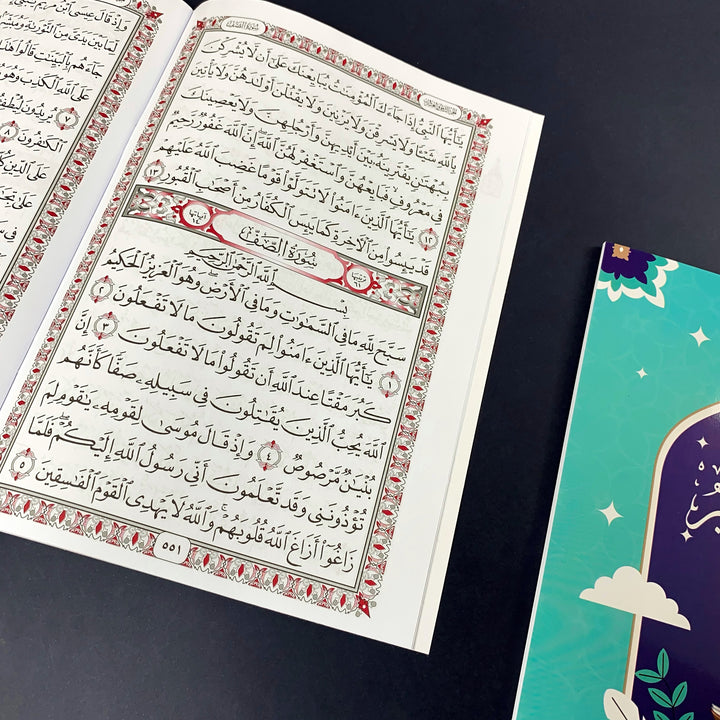 سُورَةُ الصَّفِّ
يَـٰٓأَيُّهَا ٱلنَّبِىُّ إِذَا جَآءَكَ ٱلْمُؤْمِنَـٰتُ يُبَايِعْنَكَ عَلَىٰٓ أَن لَّا يُشْرِكْنَ
بِٱللَّهِ شَيْـًٔا وَلَا يَسْرِقْنَ وَلَا يَزْنِينَ وَلَا يَقْتُلْنَ أَوْلَـٰدَهُنَّ وَلَا يَأْتِينَ
بِبُهْتَـٰنٍ يَفْتَرِينَهُۥ بَيْنَ أَيْدِيهِنَّ وَأَرْجُلِهِنَّ وَلَا يَعْصِينَكَ
فِى مَعْرُوفٍ فَبَايِعْهُنَّ وَٱسْتَغْفِرْ لَهُنَّ ٱللَّهَ إِنَّ ٱللَّهَ غَفُورٌ رَّحِيمٌ
١٢ يَـٰٓأَيُّهَا ٱلَّذِينَ ءَامَنُوا۟ لَا تَتَوَلَّوْا۟ قَوْمًا غَضِبَ ٱللَّهُ عَلَيْهِمْ
قَدْ يَئِسُوا۟ مِنَ ٱلْـَٔاخِرَةِ كَمَا يَئِسَ ٱلْكُفَّارُ مِنْ أَصْحَـٰبِ ٱلْقُبُورِ ١٣
ترتيبها ٦١ سُورَةُ الصَّفِّ آياتها ١٤
بِسْمِ ٱللَّهِ ٱلرَّحْمَـٰنِ ٱلرَّحِيمِ
سَبَّحَ لِلَّهِ مَا فِى ٱلسَّمَـٰوَٰتِ وَمَا فِى ٱلْأَرْضِ وَهُوَ ٱلْعَزِيزُ ٱلْحَكِيمُ
١ يَـٰٓأَيُّهَا ٱلَّذِينَ ءَامَنُوا۟ لِمَ تَقُولُونَ مَا لَا تَفْعَلُونَ ٢
كَبُرَ مَقْتًا عِندَ ٱللَّهِ أَن تَقُولُوا۟ مَا لَا تَفْعَلُونَ ٣ إِنَّ
ٱللَّهَ يُحِبُّ ٱلَّذِينَ يُقَـٰتِلُونَ فِى سَبِيلِهِۦ صَفًّا كَأَنَّهُم
بُنْيَـٰنٌ مَّرْصُوصٌ ٤ وَإِذْ قَالَ مُوسَىٰ لِقَوْمِهِۦ يَـٰقَوْمِ لِمَ
تُؤْذُونَنِى وَقَد تَّعْلَمُونَ أَنِّى رَسُولُ ٱللَّهِ إِلَيْكُمْ فَلَمَّا
زَاغُوٓا۟ أَزَاغَ ٱللَّهُ قُلُوبَهُمْ وَٱللَّهُ لَا يَهْدِى ٱلْقَوْمَ ٱلْفَـٰسِقِينَ ٥
٥٥١
وَإِذْ قَالَ عِيسَى ٱبْنُ مَرْيَمَ يَـٰبَنِىٓ
لِّمَا بَيْنَ يَدَىَّ مِنَ ٱلتَّوْرَىٰةِ وَمُبَشِّرًۢا
جَآءَهُم بِٱلْبَيِّنَـٰتِ قَالُوا۟ هَـٰذَا
عَلَى ٱللَّهِ ٱلْكَذِبَ وَهُوَ
٧ يُرِيدُونَ لِيُطْفِـُٔوا۟
ٱلْكَـٰفِرُونَ ٨
عَلَى ٱلدِّينِ